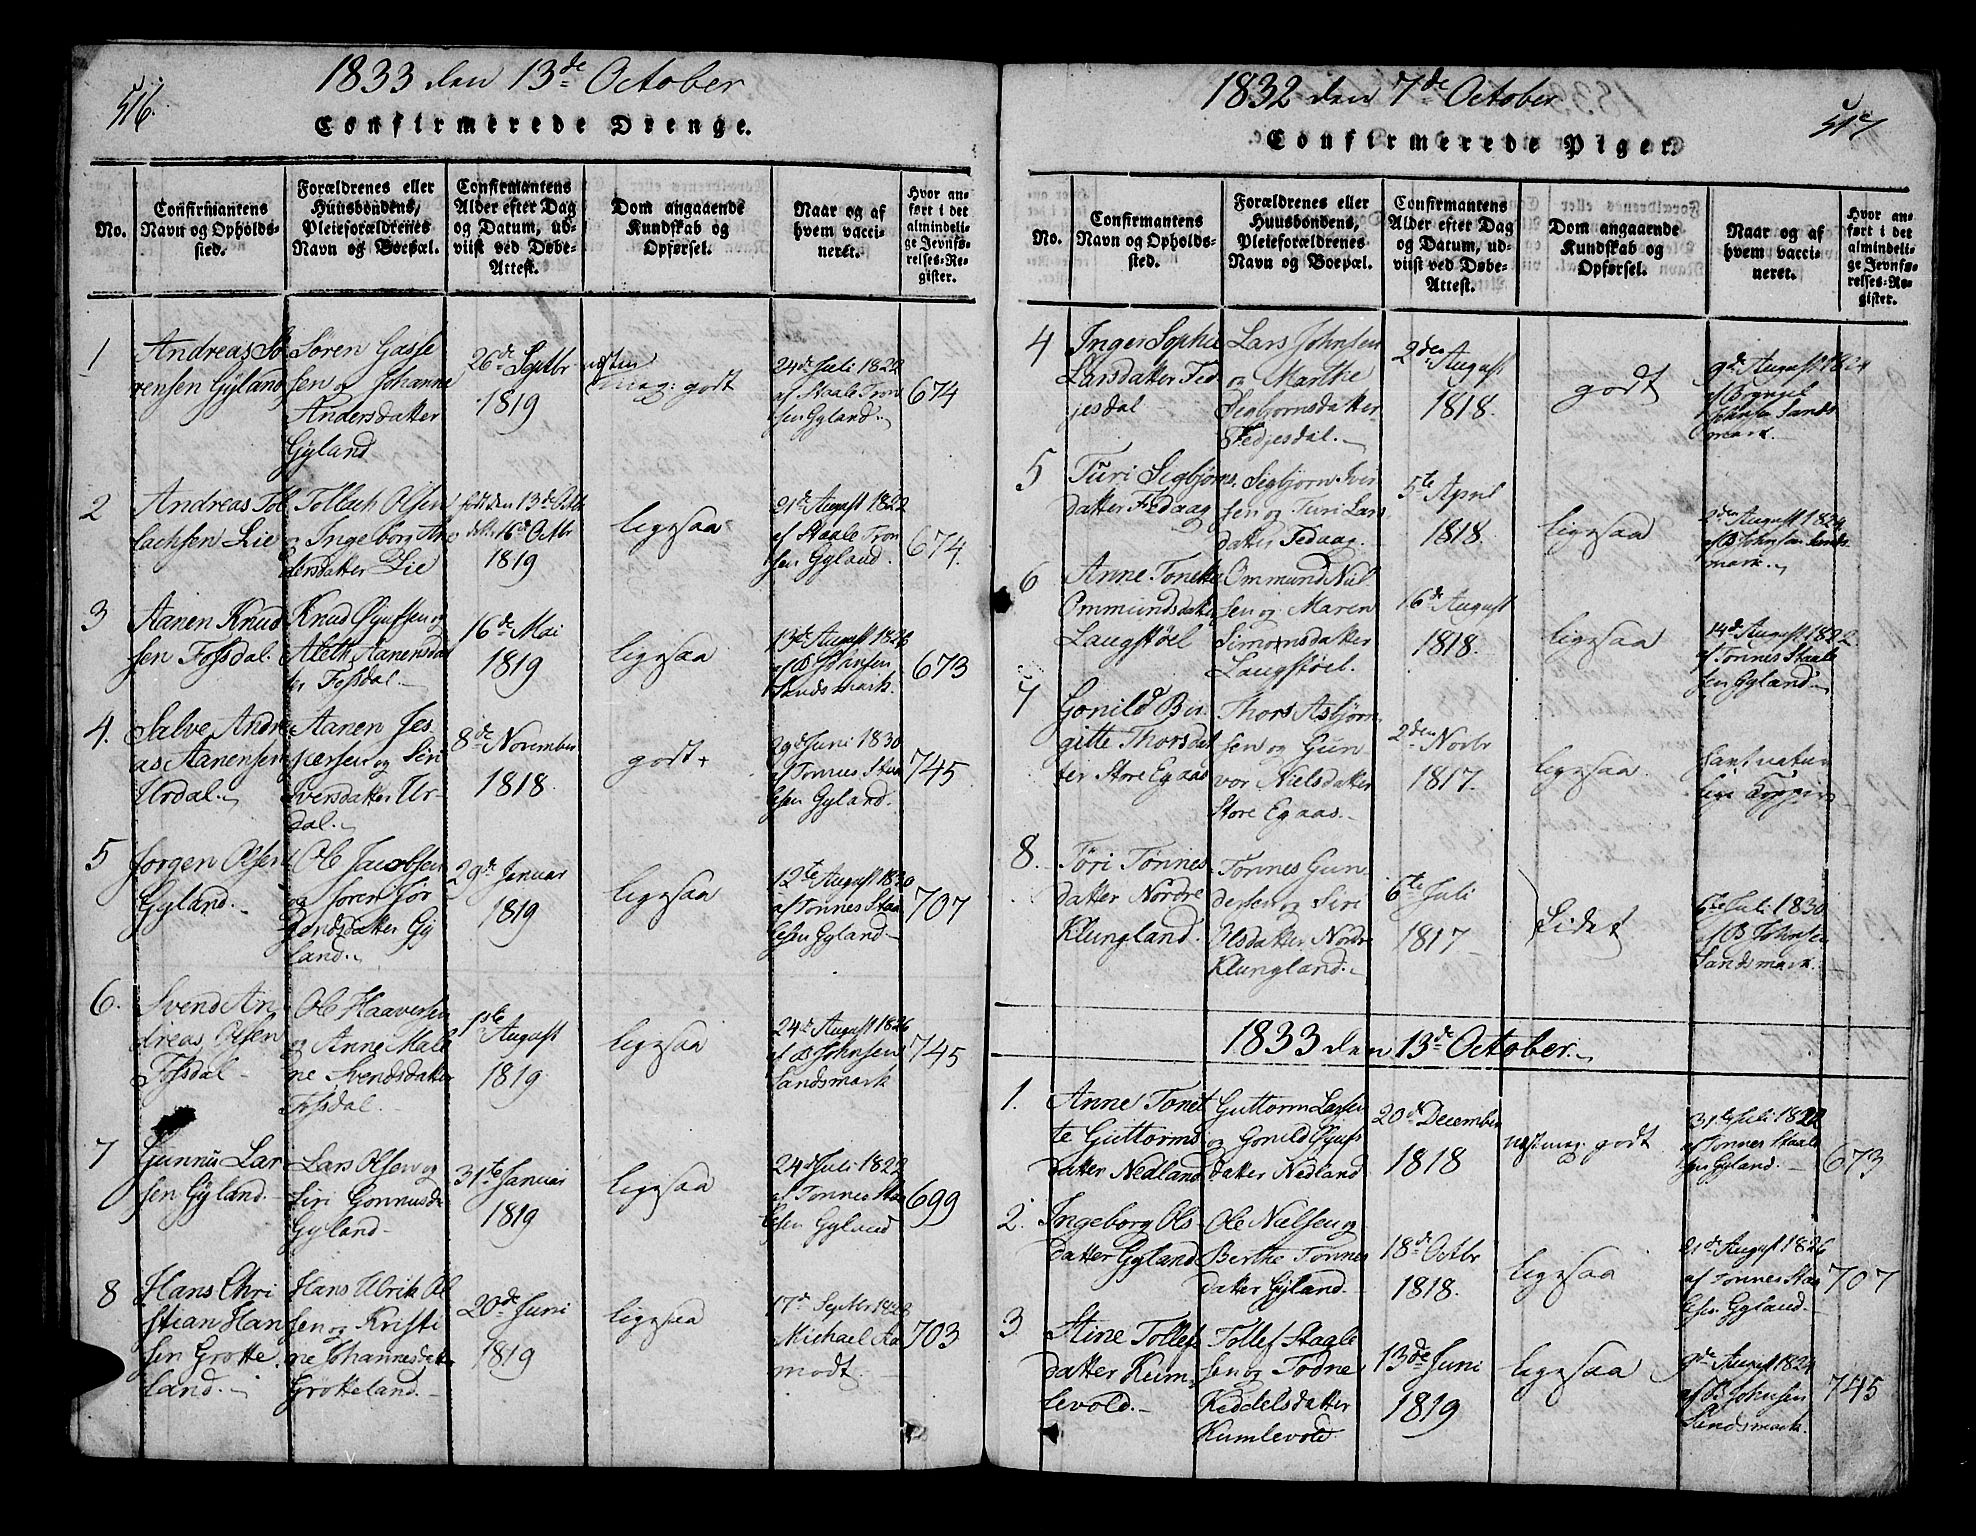 516.
1833 den 13de October
Confirmerede Drenge.
No.
Confirmantens
Navn og Opholds-
sted.
Forældrenes eller
Huusbondens,
Pleieforældrenes
Navn og Boepæl.
Confirmantens
Alder efter Dag
og Datum, ud-
viist ved Døbe-
Attest.
Dom angaaende
Kundskab og
Opførsel.
Naar og af
hvem vacci-
neret.
Hvor an-
ført i det
almindeli-
ge Jevnfø-
relses-Re-
gister.
1
Andreas Sø
rensen Gyland
Søren Gasse
sen og Johanne
Andersdatter
Gyland
26de Septbr
1819
næsten
mag: godt
24de Juli 1822
af Staale Tron
sen Gyland.
674
2
Andreas Tol
lachsen Lie
Tollach Olsen
og Ingebor An
dersdatter Lie
født den 13de Octb
16de Octbr
1819
ligesaa
21de August 1822
af Staale Tron
sen Gyland.
674.
3
Aanen Knud
sen Fossdal.
Knud Øyufsen og
Aleth Aanensdat
ter Fossdal.
16de Mai
1819
ligesaa
13de August 1826
af B Johnsen
Sandsmark.
673
4.
Salve Andre
as Aanensen
Urdal.
Aanen Jes
persen og Siri
Iversdatter Ur-
dal.
8de November
1818.
godt
29de Juni 1830
af Tønnes Staa
lesen Gyland.
745
5
Jørgen Olsen
Gyland.
Ole Jacobsen
og Søren Jør
gensdatter Gy
land.
29de Januar
1819
ligesaa
12te August 1830
af Tønnes Staa
lesen Gyland
707
6.
Svend An-
dreas Olsen
Fossdal
Ole Haaversen
og Anne Mall
ne Svendsdatter
Fossdal.
1ste August
1819
ligesaa
24de August 1826
af B Johnsen
Sandsmark
745
7
Gunnus Lar
sen Gyland.
Lars Olsen og
Siri Gonnusda
Gyland
31te Januar
1819
ligesaa
24de Juli 1822
af Tonnes Staa
lesen Gyland
699
8
Hans Chri
stian Han
sen Grotte
land.
Hans Ulrik Ol
sen og Kristi
ne Johannesdatter
Grøtteland.
20de Juni
1819
ligesaa
17de Septbr 1823
Michael Aa
modt.
703
1832 den 7de October
517
Confirmerede Piger.
No.
Confirmantens
Navn og Opholds-
sted.
Forældrenes eller
Huusbondens,
Pleieforældrenes
Navn og Boepæl.
Confirmantens
Alder efter Dag
og Datum, ud-
viist ved Døbe-
Attest.
Dom angaaende
Kundskab og
Opførsel.
Naar og af
hvem vacci-
neret.
Hvor an-
ført i det
almindeli-
ge Jevnfø-
relses-Re-
gister.
4
Inger Sophie
Larsdatter Fed
jesdal
Lars Johnsen
og Marthe
Segbjornsdatter
Fedjesdal.
2den August
1818.
godt
9de August 1824
af
Johnsen Sands
mark.
5
Turi Segbjorns
datter Fedaag
Segbjorn Iver
sen og Turi Lars
datter Fedaag.
5te April
1818.
ligesaa
2den August 1824
af B Johnsen Sands
mark.
6
Anne Tonette
Ommundsdatter
Laugstøel
Ommund Niel
sen og Maren
Simonsdatter
Laugstøel.
16de August
1818.
ligesaa
14de August 1822
af Tønnes Staale
sen Gyland.
7
Gonild Bir
gitte Thorsdat
ter Store Egaas
Thors Asbjørn
sen og Gun
vor Nielsdatter
Store Egaas.
2den Novbr
1817.
ligesaa.
havt natur
lige Kopper
8.
Tøri Tønnes
datter Nordre
Klungland.
Tønnes Gun
dersen og Siri
Olsdatter Nordre
Klungland.
6te Juli
1817
6te Juli 1830
af B Johnsen
Sandsmark.
1833 den 13de October.
1.
Anne Tonet
te Guttorms
datter Nedland
Guttorm Larsen
og Gonild Øyufs
datter Nedland
20de December
1818
næst mag: godt
31te Juli 1822
af Tonnes Staale
sen Gyland.
673
2.
Ingeborg Ols
datter Gyland
Ole Nielsen og
Berthe Tonnes
datter Gyland.
18de Octbr
1818.
ligesaa
21de August 1826
af Tonnes Staa
lesen Gyland.
707
3
Stine Tollefs
datter Kum
levold.
Tollef Staale
sen og Todne
Keddelsdatter
Kumlevold
13de Juni
1819
ligesaa
9de August 1824
af B Johnsen
Sandsmark.
745